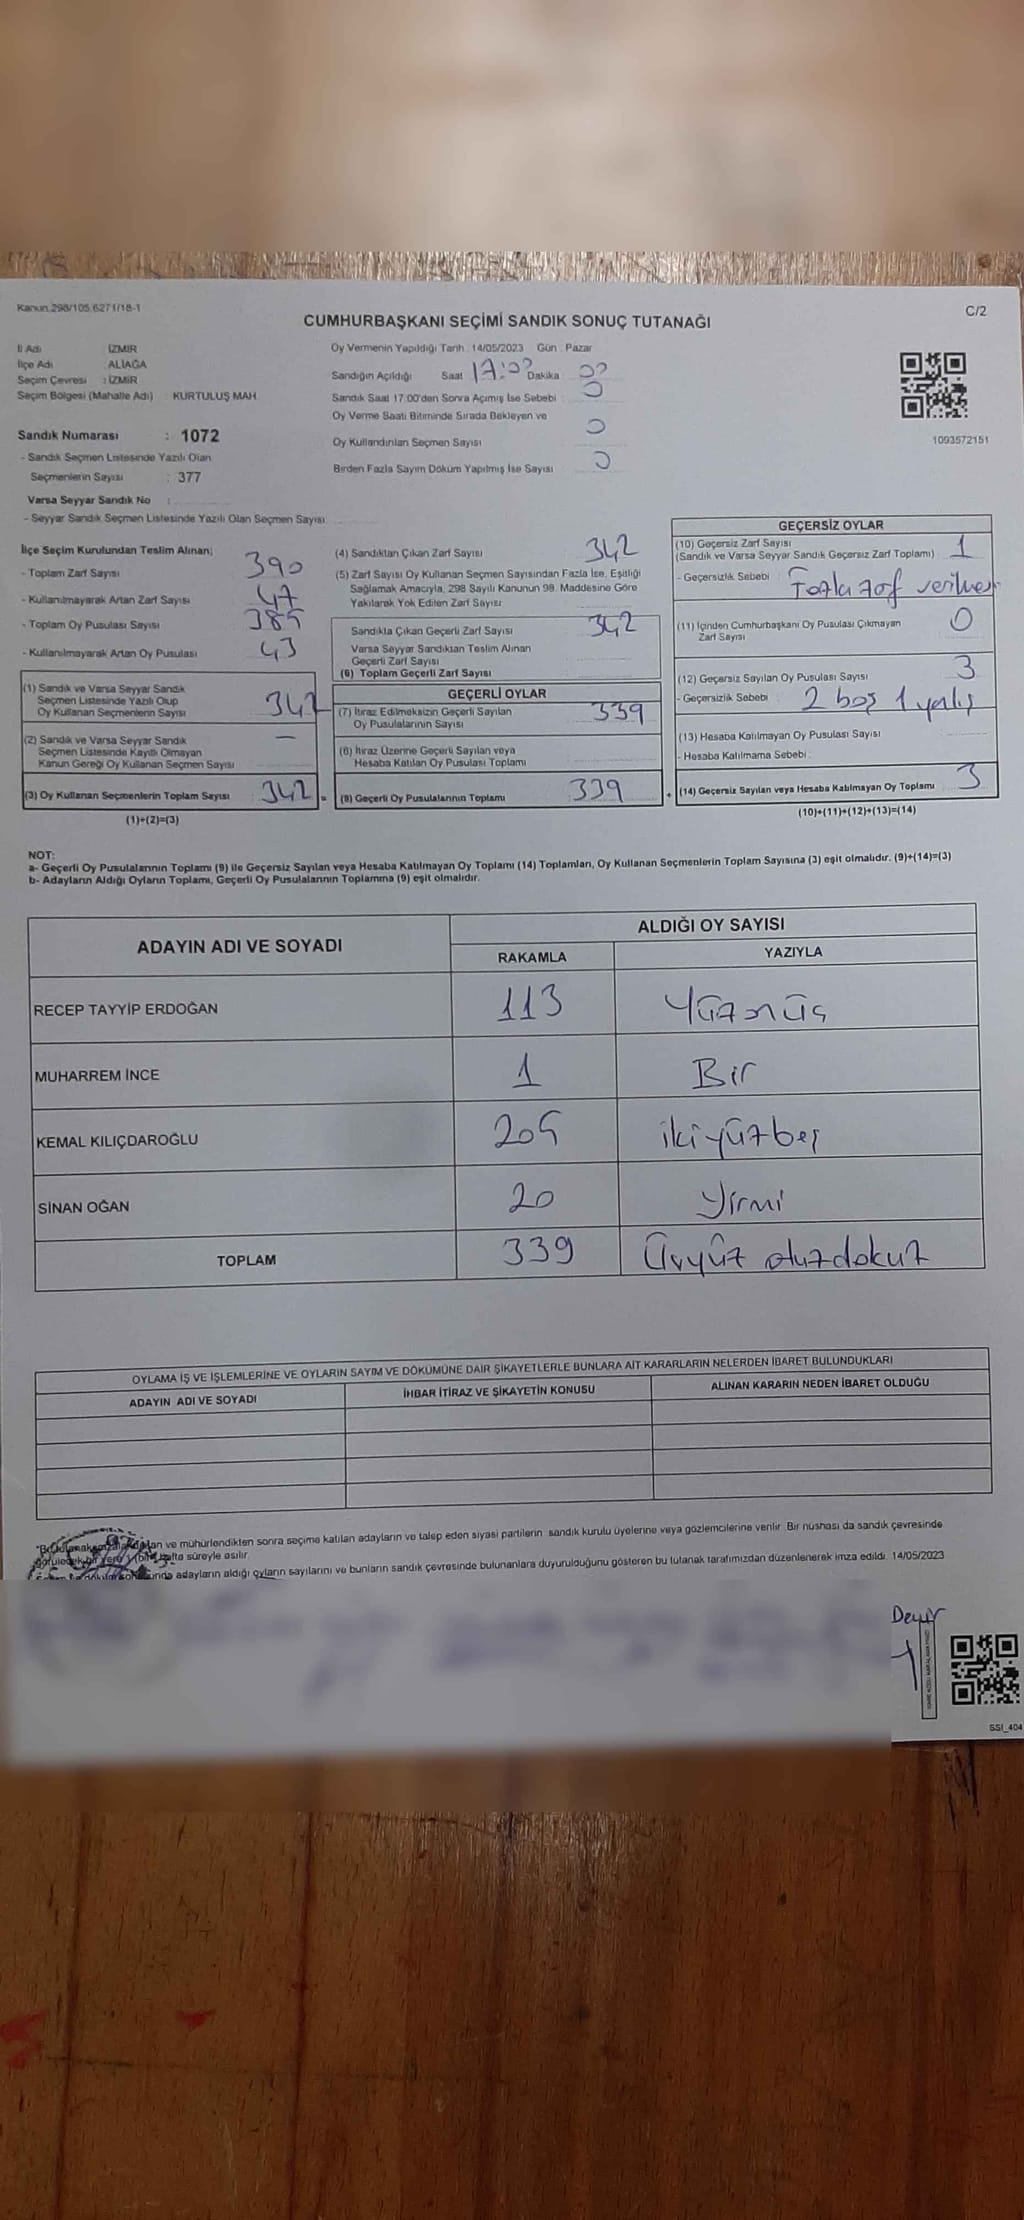 Kanun.298/105,6271/18-1
C/2
CUMHURBAŞKANI SEÇİMİ SANDIK SONUÇ TUTANAĞI
İl Adı : İZMİR
İlçe Adı : ALİAĞA
Seçim Çevresi : İZMİR
Seçim Bölgesi (Mahalle Adı) : KURTULUŞ MAH.
Sandık Numarası : 1072
- Sandık Seçmen Listesinde Yazılı Olan
Seçmenlerin Sayısı : 377
Varsa Seyyar Sandık No :
- Seyyar Sandık Seçmen Listesinde Yazılı Olan Seçmen Sayısı:
Oy Vermenin Yapıldığı Tarih : 14/05/2023 Gün : Pazar
Sandığın Açıldığı Saat 17:00 Dakika 00
Sandık Saat 17:00'den Sonra Açımış İse Sebebi : 0
Oy Verme Saati Bitiminde Sırada Bekleyen ve
Oy Kullandırılan Seçmen Sayısı 0
Birden Fazla Sayım Döküm Yapılmış İse Sayısı 0
1093572151
İlçe Seçim Kurulundan Teslim Alınan;
- Toplam Zarf Sayısı 390
- Kullanılmayarak Artan Zarf Sayısı 47
- Toplam Oy Pusulası Sayısı 385
- Kullanılmayarak Artan Oy Pusulası 43
(1) Sandık ve Varsa Seyyar Sandık
Seçmen Listesinde Yazılı Olup
Oy Kullanan Seçmenlerin Sayısı 342
(2) Sandık ve Varsa Seyyar Sandık
Seçmen Listesinde Kayıtlı Olmayan
Kanun Gereği Oy Kullanan Seçmen Sayısı –
(3) Oy Kullanan Seçmenlerin Toplam Sayısı 342 =
(1)+(2)=(3)
(4) Sandıktan Çıkan Zarf Sayısı 342
(5) Zarf Sayısı Oy Kullanan Seçmen Sayısından Fazla İse, Eşitliği
Sağlamak Amacıyla, 298 Sayılı Kanunun 98. Maddesine Göre
Yakılarak Yok Edilen Zarf Sayısı:
Sandıkta Çıkan Geçerli Zarf Sayısı 342
Varsa Seyyar Sandıktan Teslim Alınan
Geçerli Zarf Sayısı
(6) Toplam Geçerli Zarf Sayısı
GEÇERLİ OYLAR
(7) İtiraz Edilmeksizin Geçerli Sayılan
Oy Pusulalarının Sayısı 339
(8) İtiraz Üzerine Geçerli Sayılan veya
Hesaba Katılan Oy Pusulası Toplamı
(9) Geçerli Oy Pusulalarının Toplamı 339 +
GEÇERSİZ OYLAR
(10) Geçersiz Zarf Sayısı
(Sandık ve Varsa Seyyar Sandık Geçersiz Zarf Toplamı) : 1
- Geçersizlik Sebebi : Fazla zarf verilmesi
(11) İçinden Cumhurbaşkanı Oy Pusulası Çıkmayan
Zarf Sayısı 0
(12) Geçersiz Sayılan Oy Pusulası Sayısı 3
- Geçersizlik Sebebi : 2 boş 1 yanlış
(13) Hesaba Katılmayan Oy Pusulası Sayısı
- Hesaba Katılmama Sebebi :
(14) Geçersiz Sayılan veya Hesaba Katılmayan Oy Toplamı 3
(10)+(11)+(12)+(13)=(14)
NOT:
a- Geçerli Oy Pusulalarının Toplamı (9) ile Geçersiz Sayılan veya Hesaba Katılmayan Oy Toplamı (14) Toplamları, Oy Kullanan Seçmenlerin Toplam Sayısına (3) eşit olmalıdır. (9)+(14)=(3)
b- Adayların Aldığı Oyların Toplamı, Geçerli Oy Pusulalarının Toplamına (9) eşit olmalıdır.
ADAYIN ADI VE SOYADI
ALDIĞI OY SAYISI
RAKAMLA YAZIYLA
RECEP TAYYİP ERDOĞAN 113 Yüzonüç
MUHARREM İNCE 1 Bir
KEMAL KILIÇDAROĞLU 205 ikiyüzbeş
SİNAN OĞAN 20 Yirmi
TOPLAM 339 Üçyüz otuzdokuz
OYLAMA İŞ VE İŞLEMLERİNE VE OYLARIN SAYIM VE DÖKÜMÜNE DAİR ŞİKAYETLERLE BUNLARA AİT KARARLARIN NELERDEN İBARET BULUNDUKLARI
ADAYIN ADI VE SOYADI İHBAR İTİRAZ VE ŞİKAYETİN KONUSU ALINAN KARARIN NEDEN İBARET OLDUĞU
ve mühürlendikten sonra seçime katılan adayların ve talep eden siyasi partilerin sandık kurulu üyelerine veya gözlemcilerine verilir. Bir nüshası da sandık çevresinde
görülecek bir yere 1 (bir) hafta süreyle asılır.
adayların aldığı oyların sayılarını ve bunların sandık çevresinde bulunanlara duyurulduğunu gösteren bu tutanak tarafımızdan düzenlenerek imza edildi. 14/05/2023
SSİ_404